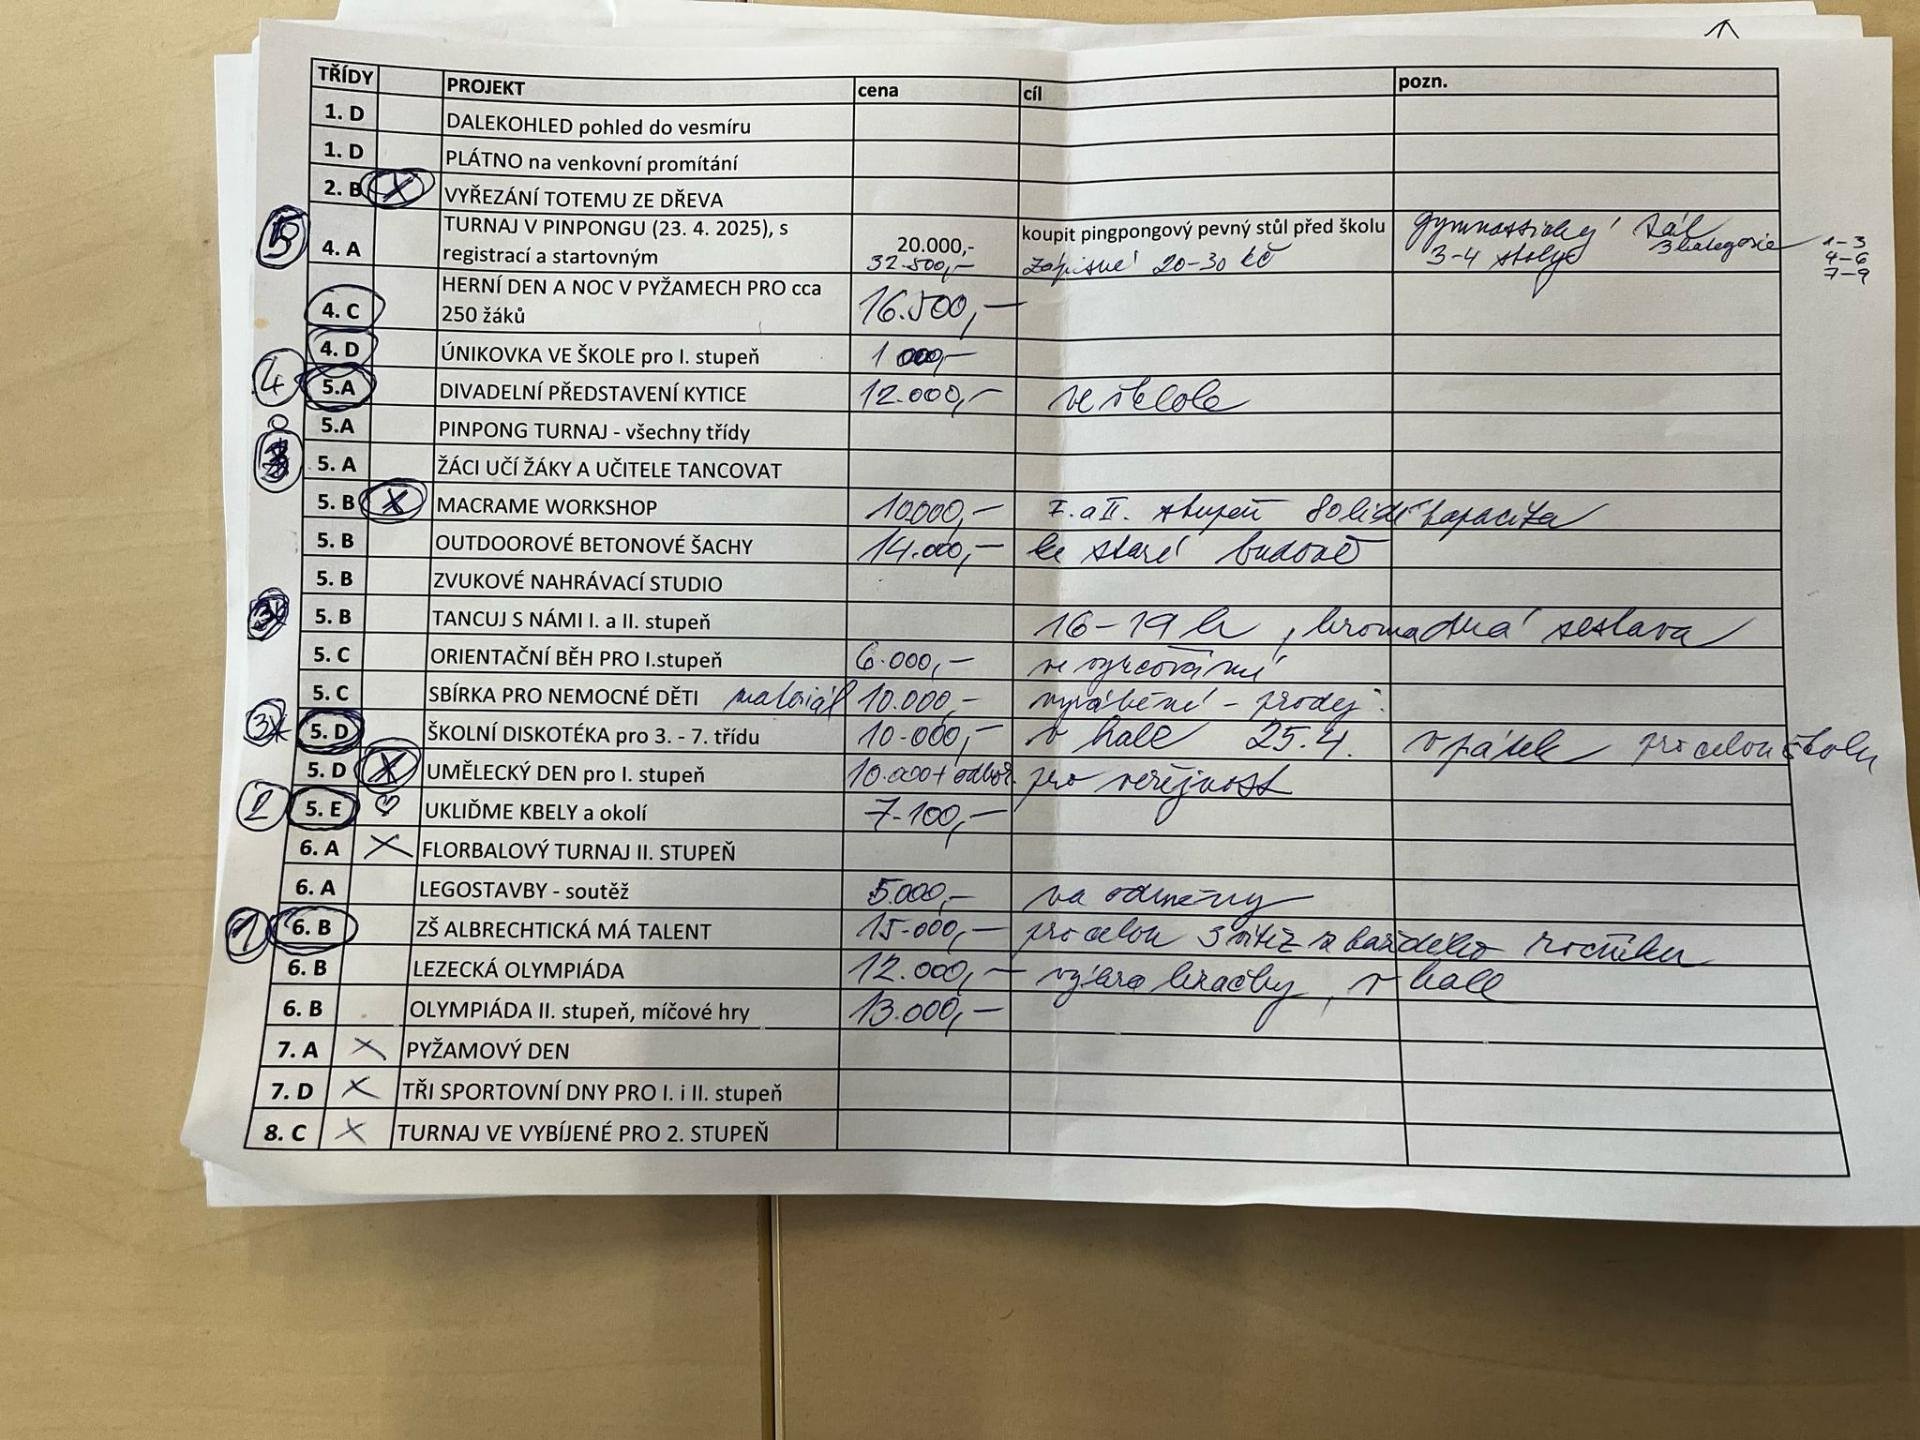 TŘÍDY PROJEKT cena cíl pozn.
1. D DALEKOHLED pohled do vesmíru
1. D PLÁTNO na venkovní promítání
2. B X VYŘEZÁNÍ TOTEMU ZE DŘEVA
TURNAJ V PINPONGU (23. 4. 2025), s koupit pingpongový pevný stůl před školu gymnastický sál
4. A registrací a startovným 20.000,- 32.500,- Zápisné 20-30 kč 3-4 stoly 3 kategorie 1-3 4-6 7-9
HERNÍ DEN A NOC V PYŽAMECH PRO cca
4. C 250 žáků 16.500,-
4. D ÚNIKOVKA VE ŠKOLE pro I. stupeň 1 000,-
4 5.A DIVADELNÍ PŘEDSTAVENÍ KYTICE 12.000,- ve škole
5.A PINPONG TURNAJ - všechny třídy
5. A ŽÁCI UČÍ ŽÁKY A UČITELE TANCOVAT
5. B X MACRAME WORKSHOP 10.000,- I. a II. stupeň 80 lidí kapacita
5. B OUTDOOROVÉ BETONOVÉ ŠACHY 14.000,- ke staré budově
5. B ZVUKOVÉ NAHRÁVACÍ STUDIO
5. B TANCUJ S NÁMI I. a II. stupeň 16-19 h, hromadná sestava
5. C ORIENTAČNÍ BĚH PRO I.stupeň 6.000,- ve vyučování
5. C SBÍRKA PRO NEMOCNÉ DĚTI materiál 10.000,- vyrábění - prodej
3 5. D ŠKOLNÍ DISKOTÉKA pro 3. - 7. třídu 10.000,- v hale 25.4. v pátek pro celou školu
5. D X UMĚLECKÝ DEN pro I. stupeň 10.000 + pro veřejnost
2 5. E ♡ UKLIĎME KBELY a okolí 7.100,-
6. A X FLORBALOVÝ TURNAJ II. STUPEŇ
6. A LEGOSTAVBY - soutěž 5.000,- na odměny
1 6. B ZŠ ALBRECHTICKÁ MÁ TALENT 15.000,- pro celou 3 z každého ročníku
6. B LEZECKÁ OLYMPIÁDA 12.000,- v hale
6. B OLYMPIÁDA II. stupeň, míčové hry 13.000,-
7. A X PYŽAMOVÝ DEN
7. D X TŘI SPORTOVNÍ DNY PRO I. i II. stupeň
8. C X TURNAJ VE VYBÍJENÉ PRO 2. STUPEŇ